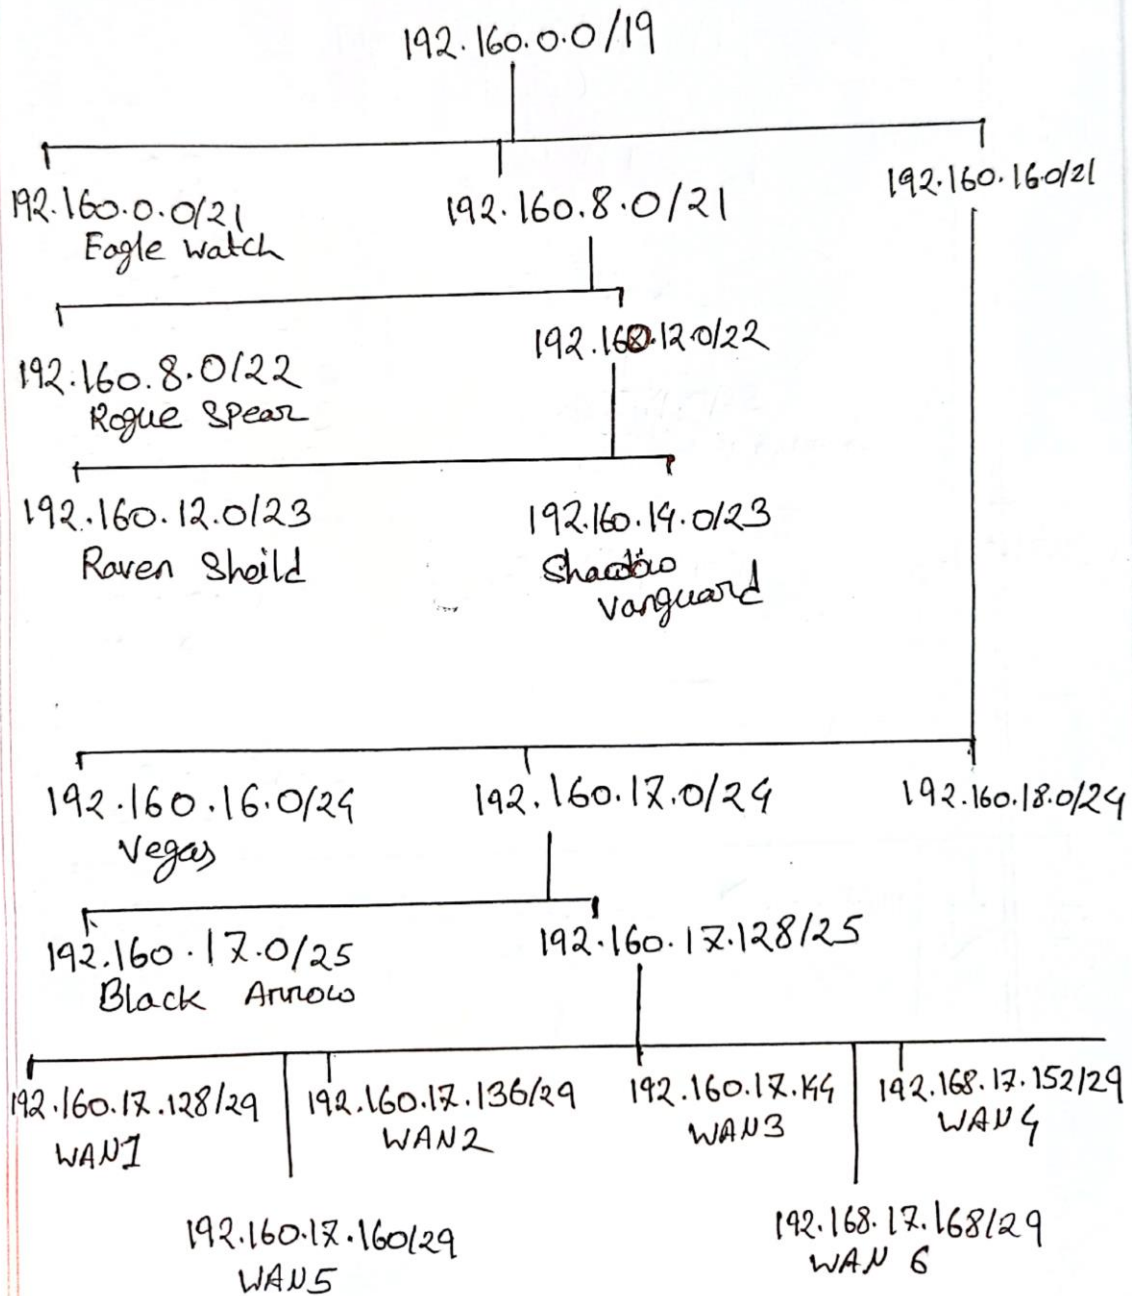 192.160.0.0/19
192.160.0.0/21
Eagle watch
192.160.8.0/21
192.160.16.0/21
192.160.8.0/22
Rogue Spear
192.160.12.0/22
192.160.12.0/23
Raven Sheild
192.160.14.0/23
Shadow
Vanguard
192.160.16.0/24
Vegas
192.160.17.0/24
192.160.18.0/24
192.160.17.0/25
Black Arrow
192.160.17.128/25
192.160.17.128/29
WAN1
192.160.17.136/29
WAN2
192.160.17.144
WAN3
192.168.17.152/29
WAN4
192.160.17.160/29
WAN5
192.168.17.168/29
WAN 6